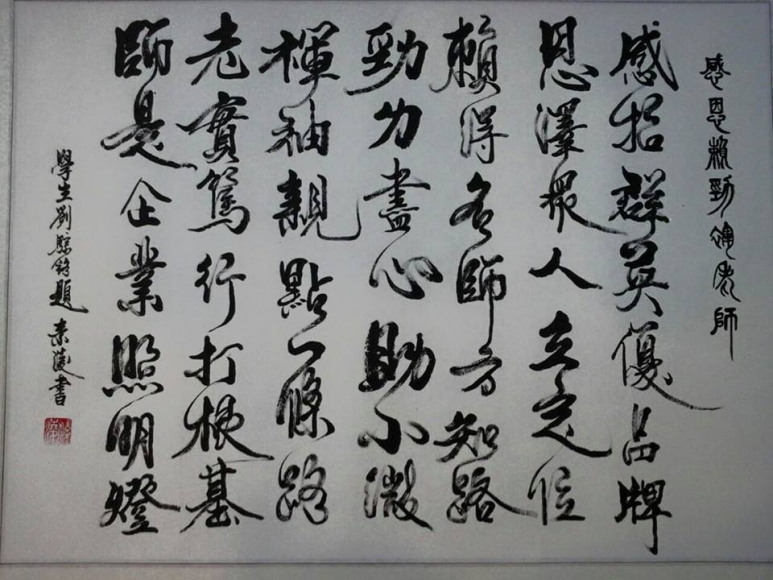 感恩賴勁婰老師
感招群英優品牌
恩澤眾人立定位
賴得名師方知路
勁力盡心助小微
揮袖親點一條路
老實篤行打根基
師是企業照明燈
學生劉 銘題 素 書